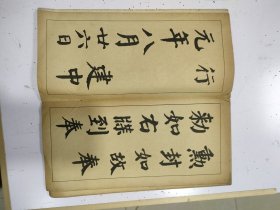 勲封如故奉
勅如右牒到奉
行建中
元年八月廿六日